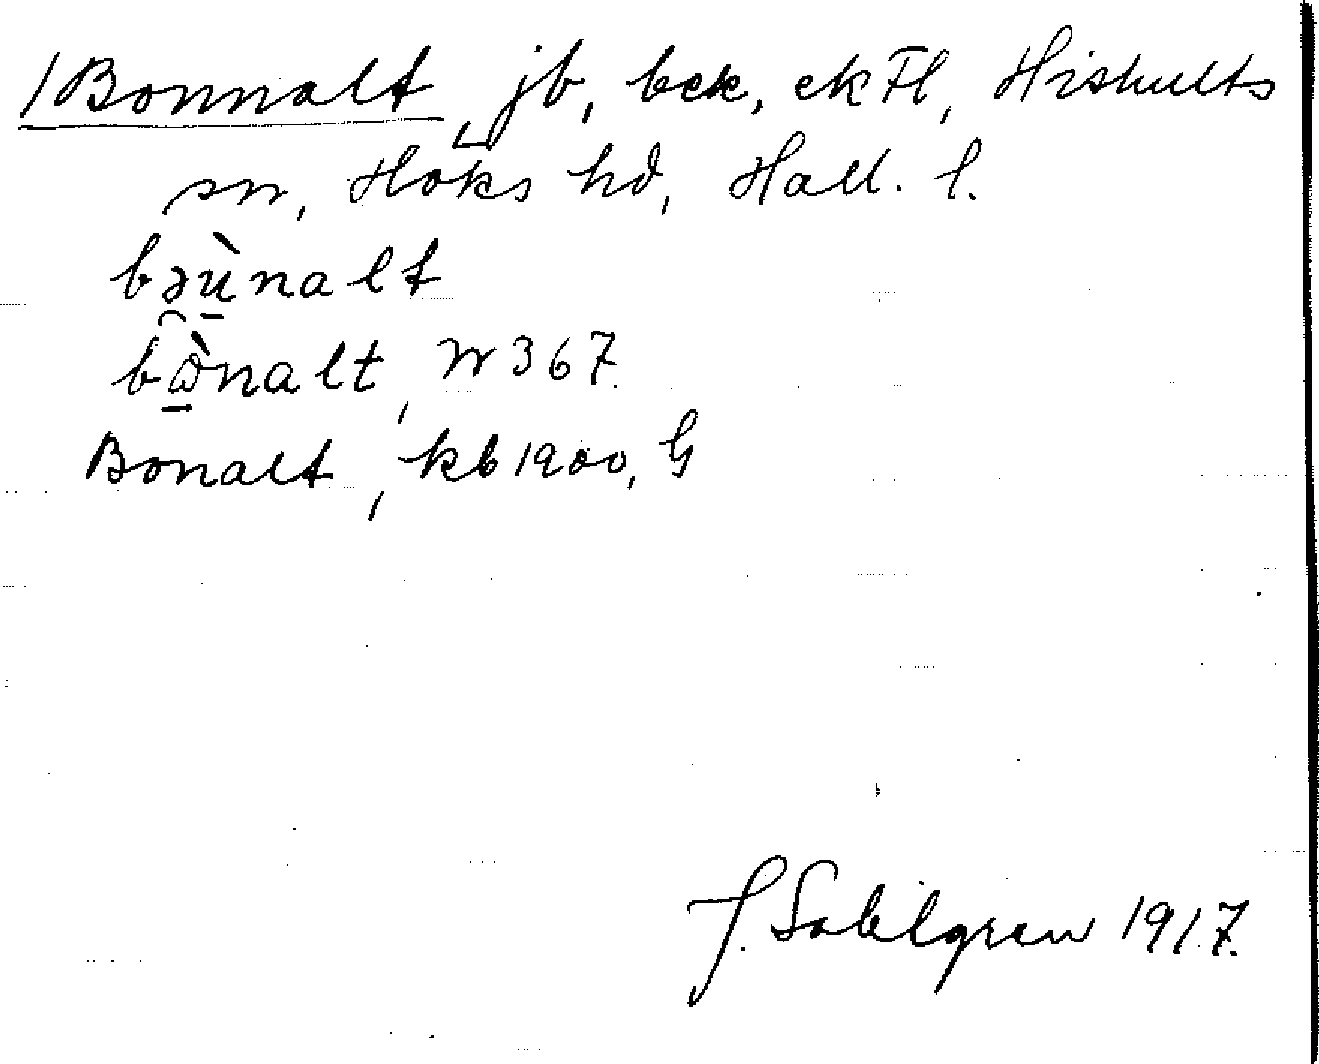 /Bonnalt, jb, bek, ekFl, Hishults
sn, Höks hd, Hall. l.
bəùnalt
bὼnalt, W 367.
Bonalt, kb 1900, G
J. Sahlgren 1917.